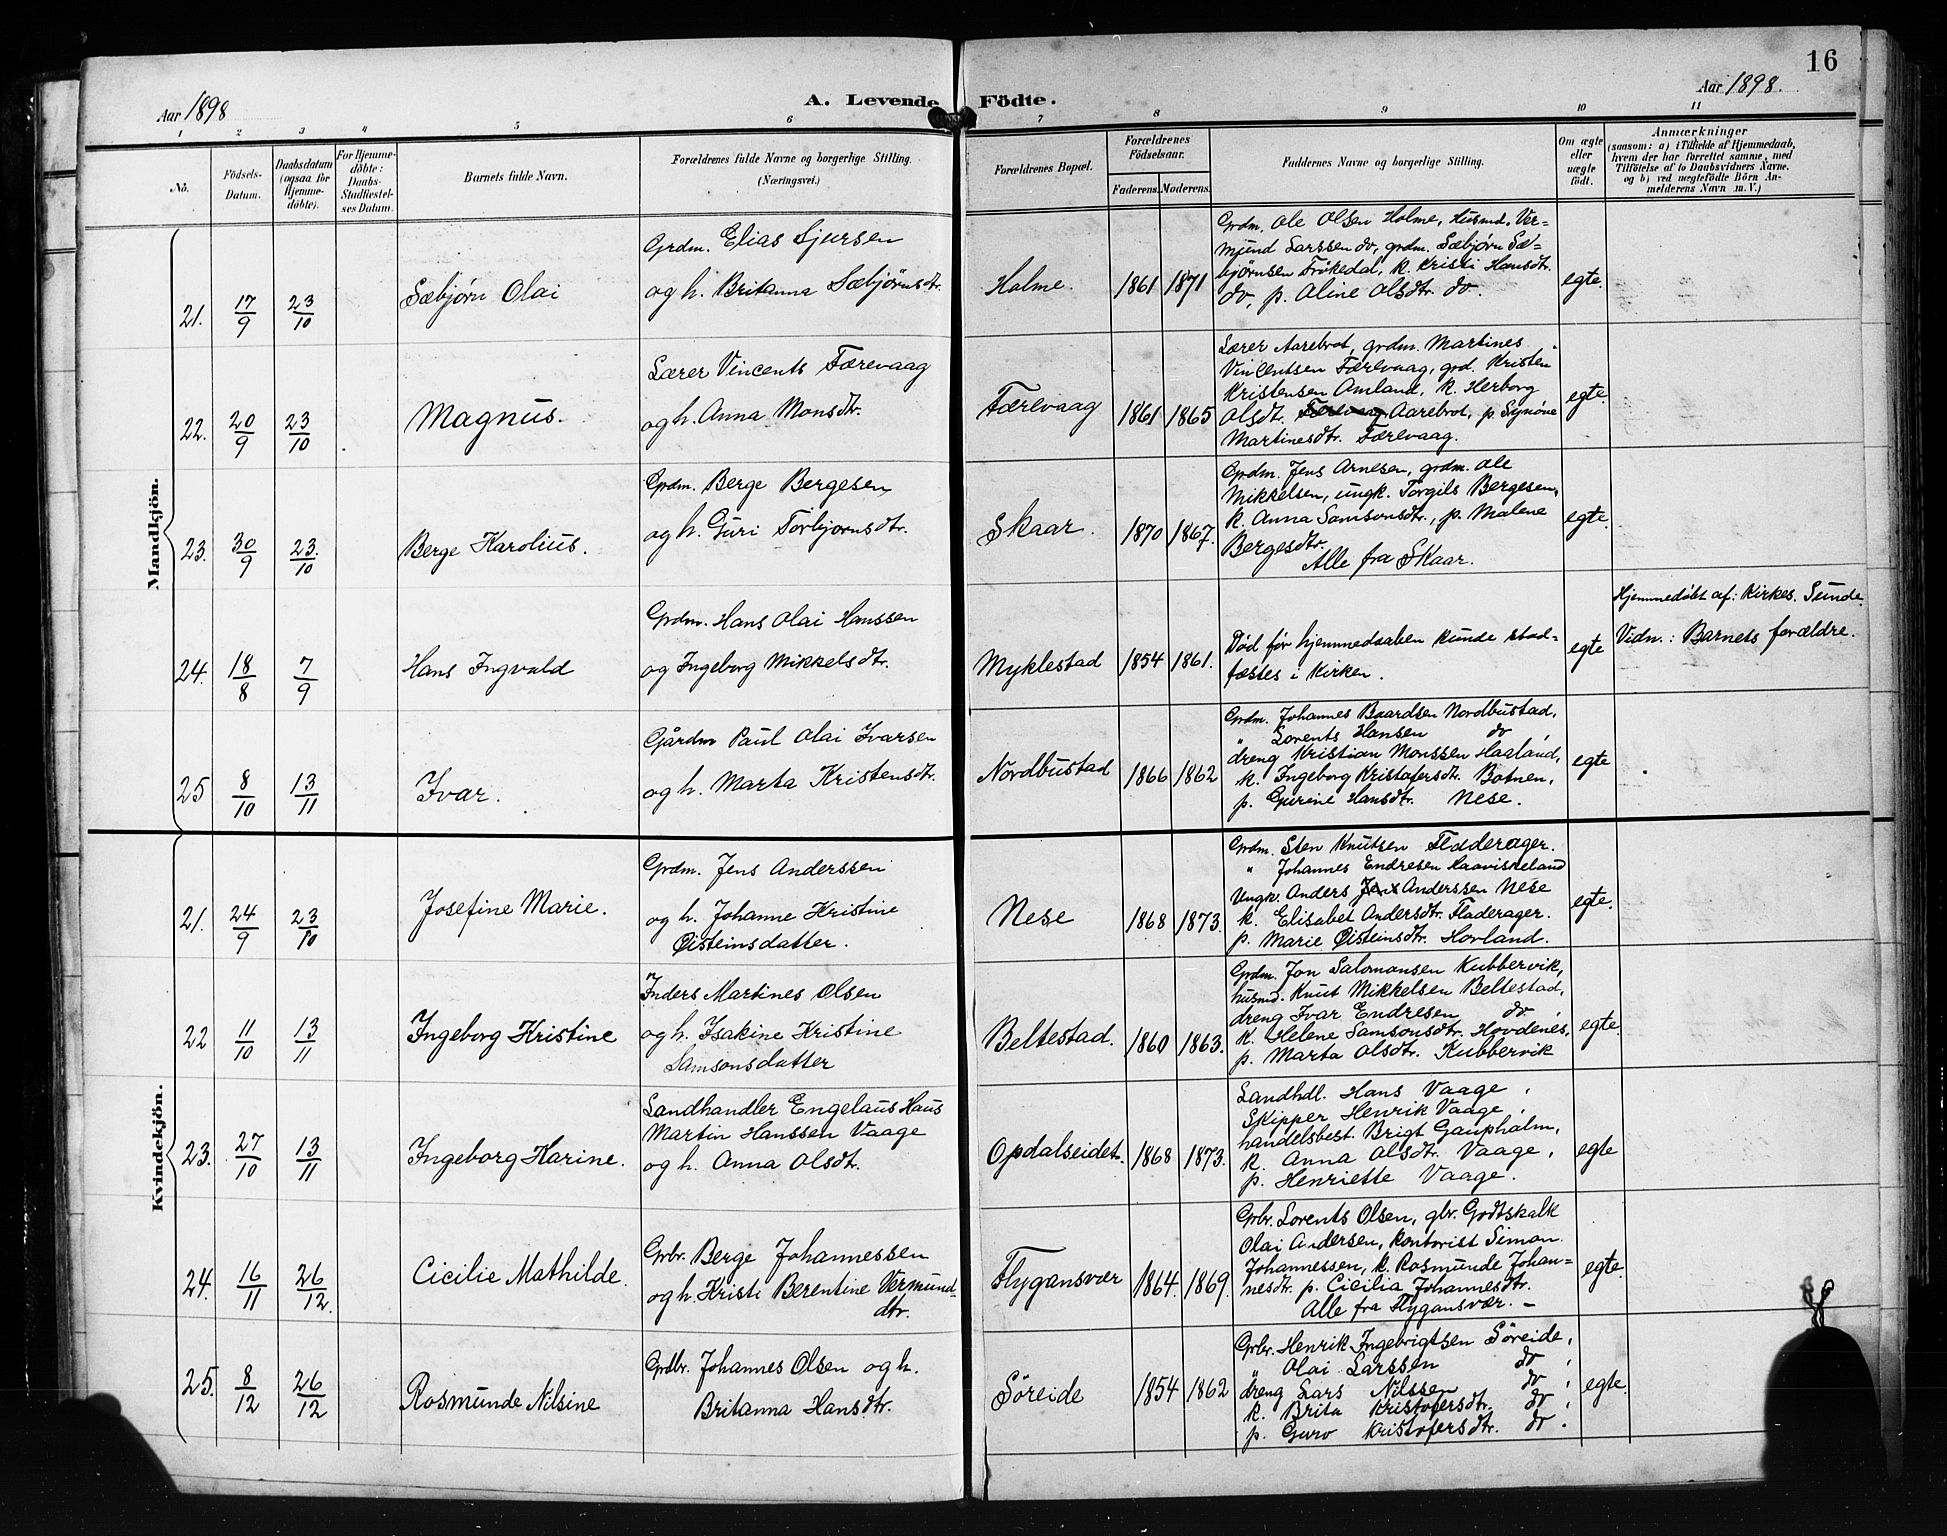 16
Aar 1898
A. Levende Födte.
Aar 1898.
1 2 3 4 5 6 7 8 9 10 11
No.
Födsels-
Datum.
Daabsdatum
(ogsaa for
Hjemme-
döbte).
For Hjemme-
döbte:
Daabs-
Stadfæstel-
ses Datum.
Barnets fulde Navn.
Forældrenes fulde Navne og borgerlige Stilling.
(Næringsvei.)
Forældrenes Bopæl.
Forældrenes
Födselsaar.
Faderens. Moderens.
Faddernes Navne og borgerlige Stilling.
Om ægte
eller
uægte
födt.
Anmærkninger
(saasom: a) i Tilfælde af Hjemmedaab,
hvem der har forrettet samme, med
Tilföielse af to Daabsvidners Navne.
og b) ved uægtefödte Börn An-
melderens Navn m. V.)
Mandkjön.
21. 17/9 23/10 Sæbjørn Olai
Grdm. Elias Sjursen
og h. Britanna Sæbjörnsdtr.
Holme. 1861 1871
Grdm. Ole Olsen Holme, Husmd. Ver-
mund Larssen do, grdm. Sæbjørn Sæ-
bjørnsen Trökedal, k. Kristi Hansdtr.
do, p. Aline Olsdtr. do.
egte.
22. 20/9 23/10 Magnus.
Lærer Vincents Færevaag
og h. Anna Monsdtr.
Færevaag 1861 1865
Lærer Aarebrot, grdm. Martines
Vincentsen Færevaag, grd. Kristen
Kristensen Amland, k. Herborg
Olsdt. Færevaag Aarebrot, p. Synöne
Martinesdtr. Færevaag.
egte.
23. 30/9 23/10 Berge Karolius.
Grdm. Berge Bergesen
og h. Guri Torbjornsdtr.
Skaar. 1870 1867.
Grdm. Jens Arnesen, grdm. Ole
Mikkelsen, ungk. Torgils Bergesen,
k. Anna Samsonsdtr., p. Malene
Bergesdtr.
Alle fra Skaar.
egte.
24. 18/8 7/9 Hans Ingvald
Grdm. Hans Olai Hanssen
og Ingeborg Mikkelsdtr.
Myklestad 1854 1861.
Död før hjemmedaaben kunde stad-
fæstes i Kirken.
egte
Hjemmedöbt af: Kirkes. Sunde.
Vidn.: Barnets forældre.
25 8/10 13/11 Ivar.
Gårdm Paul Olai Ivarsen
og h. Marta Kristensdtr.
Nordbustad 1866 1862
Grdm. Johannes Baardsen Nordbustad,
" Lorents Hansen do
dreng Kristian Monssen Haaland,
k. Ingeborg Kristofersdtr. Botnen,
p. Gurine Hansdtr. Nese.
egte
Kvindekjön.
21. 24/9 23/10 Josefine Marie.
Grdm. Jens Anderssen
og h. Johanne Kristine
Øisteinsdatter.
Nese 1868 1873.
Grdm. Sten Knutsen Fladerager.
" Johannes Endresen Raaviskeland
Ungk. Anders Jens Anderssen Nese
k. Elisabet Andersdtr. Fladerager.
p. Marie Øisteinsdtr. Hovland.
egte.
22 11/10 13/11 Ingeborg Kristine
Inders Martines Olsen
og h. Isakine Kristine
Samsonsdatter
Beltestad. 1860 1863.
Grdm. Jon Salomonsen Kubbervik,
husmd. Knut Mikkelsen Beltestad,
dreng Ivar Endresen do,
k. Helene Samsonsdtr. Hovdenes,
p. Marta Olsdtr. Kubbervik
egte.
23. 27/10 13/11 Ingeborg Harine.
Landhandler Engelaus Haus
Martin Hanssen Vaage
og h. Anna Olsdt.
Opdalseidet. 1868 1873.
Landhdl. Hans Vaage,
Skipper Henrik Vaage,
handelsbest. Brigt Gaupholm,
k. Anna Olsdtr. Vaage,
p. Henriette Vaage.
egte
24. 16/11 26/12. Cicilie Mathilde.
Grbr. Berge Johannessen
og h. Kristi Berentine Vermund-
dtr.
Flygansvær 1864. 1869.
Grbr. Lorents Olsen, gbr. Godtskalk
Olai Andersen, Kontorist Simon
Johannessen, k. Rosmunde Johan-
nesdtr. p. Cicilia Johannesdtr.
Alle fra Flygansvær. –
egte.
25. 8/12 26/12 Rosmunde Nilsine
Grdbr. Johannes Olsen og h.
Britanna Hansdtr.
Söreide 1854 1862
Grbr. Henrik Ingebrigtsen Söreide,
" Olai Larssen do,
dreng Lars Nilssen do,
k. Brita Kristofersdtr. do,
p. Guro Kristofersdtr. do.
egte.